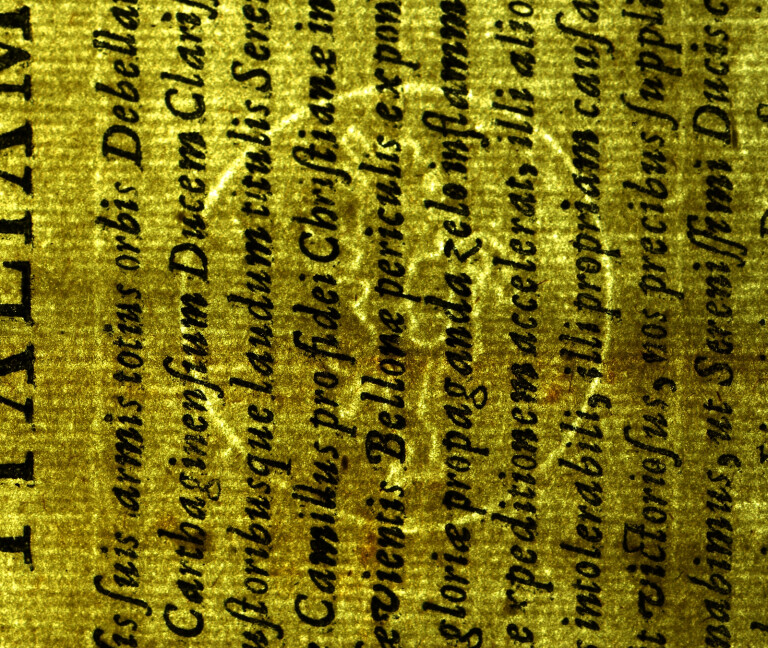 ſuis armis totius orbis Debella
Carthaginenſium Ducem Clariſ
uſtoribusque laudum titulis Sere
Camillus pro fidei Chriſtianæ in
Vieniis Bellonæ periculis expon
gloriæ propaganda zelo inflamm
expeditionem accelerat, illi alio
intolerabili, illi propriam cauſa
t victorioſus, nos precibus ſuppli
nabimus, ut Sereniſſimi Ducis